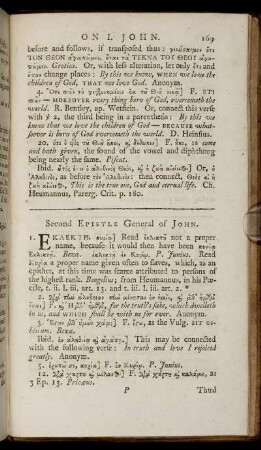 ON I. JOHN. 169
before and follows, if transposed thus: γινώσκομεν ὅτι
ΤΟΝ ΘΕΟΝ ἀγαπῶμεν, ὅταν τὰ ΤΕΚΝΑ ΤΟΥ ΘΕΟΥ ἀγα-
πῶμεν. Grotius. Or, with less alteration, let only ὅτι and
ὅταν change places: By this we know, WHEN we love the
children of God, THAT we love God. Anonym.
4. Ὅτι πᾶν τὸ γεγεννημένον ἐκ τοῦ Θεοῦ νικᾷ] F. ΕΤΙ
πᾶν — MOREOVER every thing born of God, overcometh the
world. R. Bentley, ap. Wetstein. Or, connect this verse
with ℣ 2, the third being in a parenthesis: By this we
know that we love the children of God — BECAUSE what-
soever is born of God overcometh the world. D. Heinsius.
20. ὅτι ὁ υἱὸς τοῦ Θεοῦ ἥκει, καὶ δέδωκεν] F. is come
and hath given, the sound of the vowel and diphthong
being nearly the same. Piscat.
Ibid. οὗτός ἐστιν ὁ ἀληθινὸς Θεὸς, καὶ ἡ ζωὴ αἰώνιος.] Or, ὁ
Ἀληθινός, as before τὸν Ἀληθινόν: then connect, Θεὸς καὶ ἡ
ζωὴ αἰώνιος. This is the true one, God and eternal life. Ch.
Heumannus, Parerg. Crit. p. 180.
Second EPISTLE General of JOHN.
1. ΕΚΛΕΚΤΗ κυρίᾳ] Read ἐκλεκτῇ not a proper
name, because it would then have been κυρίᾳ
Ἐκλεκτῇ. Beza. ἐκλεκτῇ ἐν Κυρίῳ. P. Junius. Read
Κυρίᾳ a proper name given often to slaves, which, as an
epithet, at this time was scarce attributed to persons of
the highest rank. Bengelius; from Heumannus, in his Pœ-
cile, t. ii. l. iii. art. 13. and t. iii. l. iii. art. 2.
2. διὰ τὴν ἀλήθειαν τὴν μένουσαν ἐν ἡμῖν, for the truth's sake, which dwelleth in
us, and which shall be with us for ever. Anonym.
3. Ἔσται μεθ' ὑμῶν χάρις] F. ἔστω, as the Vulg. SIT vo-
biscum. Beza.
Ibid. ἐν ἀληθείᾳ καὶ ἀγάπῃ.] This may be connected
with the following verse: In truth and love I rejoiced
greatly. Anonym.
5. ἐρωτῶ σε, κυρία] F. ἐν Κυρίῳ. P. Junius.
12. διὰ χάρτου καὶ μέλανος] F. διὰ χάρτου καὶ καλάμου, as
3 Ep. 13. Pricæus.
P Third